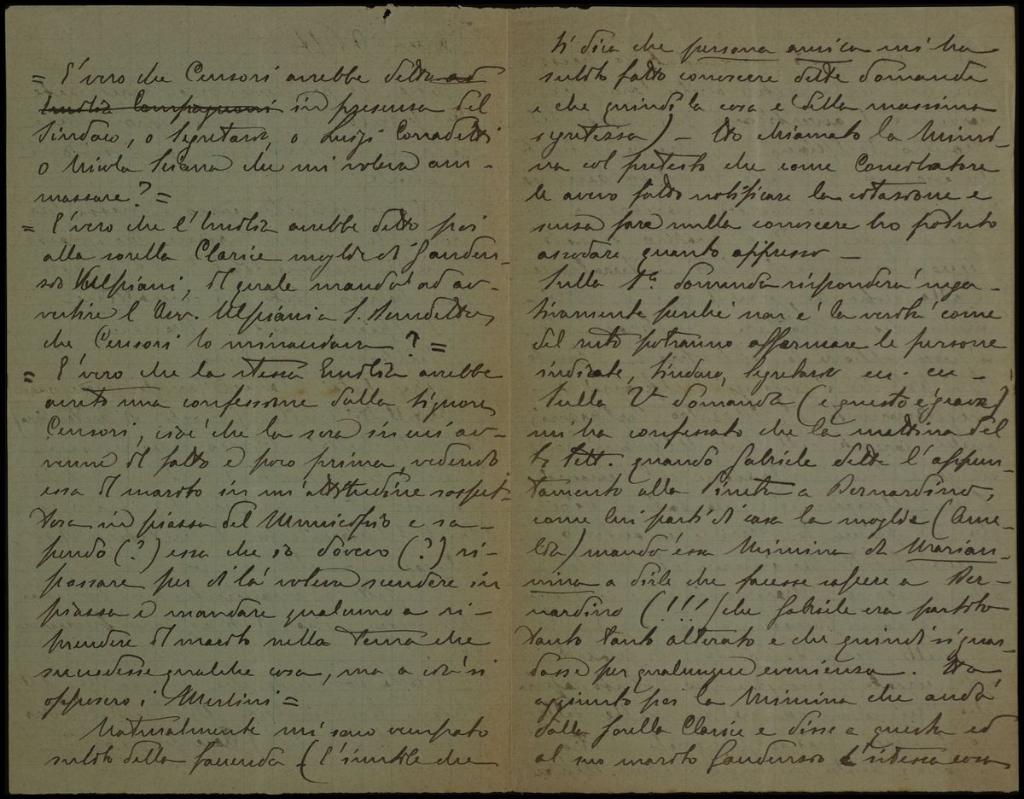 = È vero che Censori avrebbe detto ad
Emilia Compagnoni in presenza del
Sindaco, o Segretario, o Luigi Corradetti
o Nicola che mi voleva am-
mazzare? =
= È vero che l'Emilia avrebbe detto poi
alla sorella Clarice moglie di Gauden-
zio Vulpiani, il quale mandò ad av-
vertire l'Avv. Ulpiani a S. Benedetto,
che Censori lo minacciava? =
= È vero che la stessa Emilia avrebbe
avuto una confessione dalla Signora
Censori, cioè che la sera in cui av-
venne il fatto e poco prima, vedendo
essa il marito in un'attitudine sospet-
tosa in piazza del Municipio e sa-
pendo (?) essa che io dovevo (?) ri-
passare per di là voleva scendere in
piazza e mandare qualcuno a ri-
prendere il marito nella tema che
succedesse qualche cosa, ma a ciò si
opposero i Merlini =
Naturalmente mi sono occupato
subito della faccenda (È inutile che
ti dica che persona amica mi ha
subito fatto conoscere dette domande
e che quindi la cosa è della massima
segretezza) – Ho chiamato la Mimi-
na col pretesto che come Conciliatore
le avevo fatto notificare la citazione e
senza fare nulla conoscere ho potuto
assodare quanto appresso –
Sulla 1ª domanda risponderà nega-
tivamente perché non è la verità come
del resto potranno affermare le persone
indicate, Sindaco, Segretario ecc. ecc –
Sulla 2ª domanda (e questo è grave)
mi ha confessato che la mattina del
Sett. quando Gabriele dette l'appun-
tamento alla Pineta a Bernardino,
come lui partì di casa la moglie (Ame-
lia) mandò essa Mimina di Marian-
nina a dirle che facesse sapere a Ber-
nardino (!!!) che Gabriele era partito
tanto tanto alterato e che quindi si guar-
dasse per qualunque evenienza. Ha
aggiunto poi la Mimina che andò
dalla sorella Clarice e disse a questa ed
al suo marito Gaudenzio l'istessa cosa